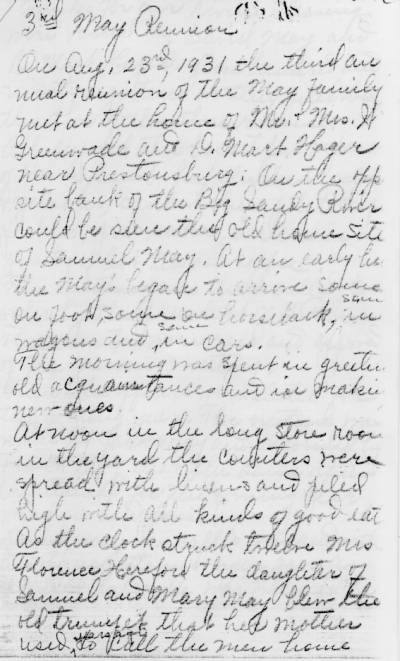 3rd May Reunion
On Aug, 23rd, 1931 the third an
nual reunion of the May family
met at the home of Mr. & Mrs. H
Greenwade and D. Mart Hager
near Prestonsburg: On the opp
site bank of the Big Sandy River
could be seen the old home site
of Samuel May. At an early ho
the May's began to arrive some
on foot, some on horseback, some in
wagons and some in cars.
The morning was spent in greetin
old acquaintances and in makin
new ones.
At noon in the long store room
in the yard the counters were
spread with linens and piled
high with all kinds of good eat
As the clock struck twelve Mrs
Florence Hereford the daughter of
Samuel and Mary May blew the
old trumpet that her mother
used, to call the men home